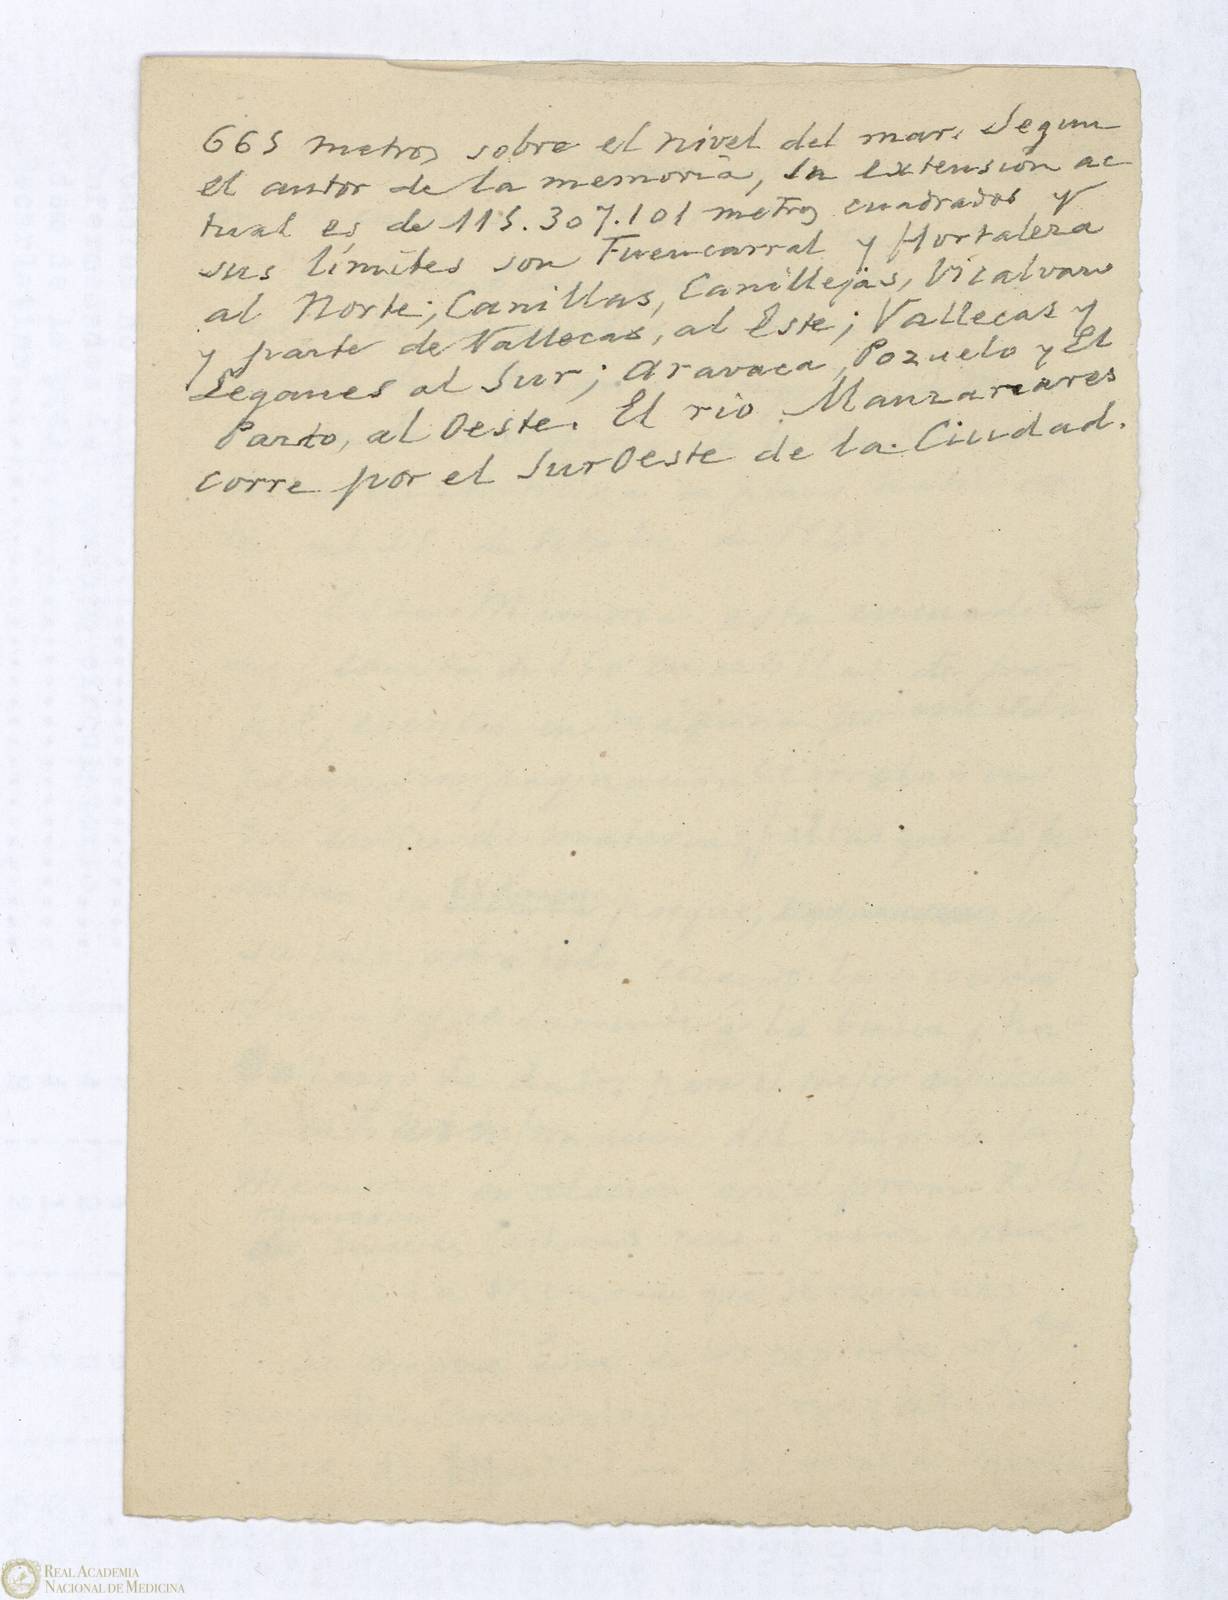 665 metros sobre el nivel del mar. Segun
el autor de la memoria, la extensión ac
tual es de 115.307.101 metros cuadrados y
sus límites son Fuencarral y Hortaleza
al Norte; Canillas, Canillejas, Vicalvaro
y parte de Vallecas, al Este; Vallecas y
Leganes al Sur; Aravaca, Pozuelo y El
Pardo, al Oeste. El rio Manzanares
corre por el SurOeste de la Ciudad.
REAL ACADEMIA
NACIONAL DE MEDICINA